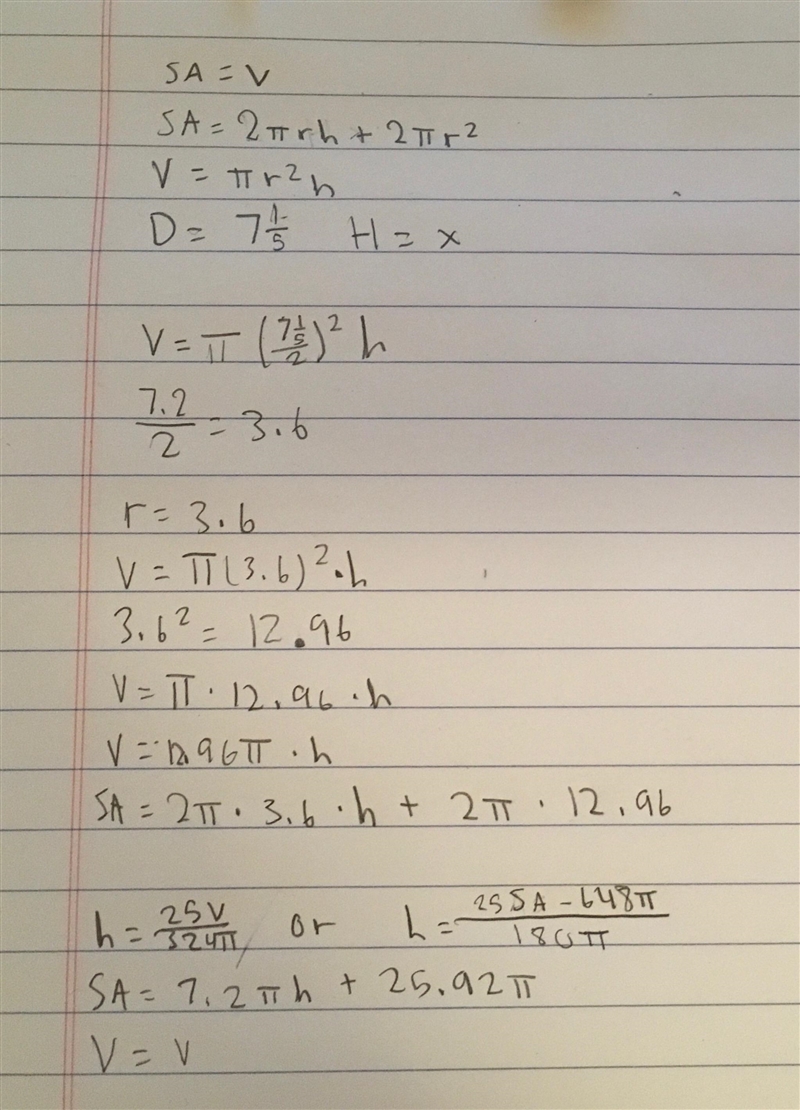 SA = V
SA = 2πrh + 2πr²
V = πr²h
D = 7 1/5 H = x
V = π (7 1/5 / 2)² h
7.2/2 = 3.6
r = 3.6
V = π(3.6)² · h
3.6² = 12.96
V = π · 12.96 · h
V = 12.96π · h
SA = 2π · 3.6 · h + 2π · 12.96
h = 25V/324π or h = 25SA - 648π/180π
SA = 7.2πh + 25.92π
V = V